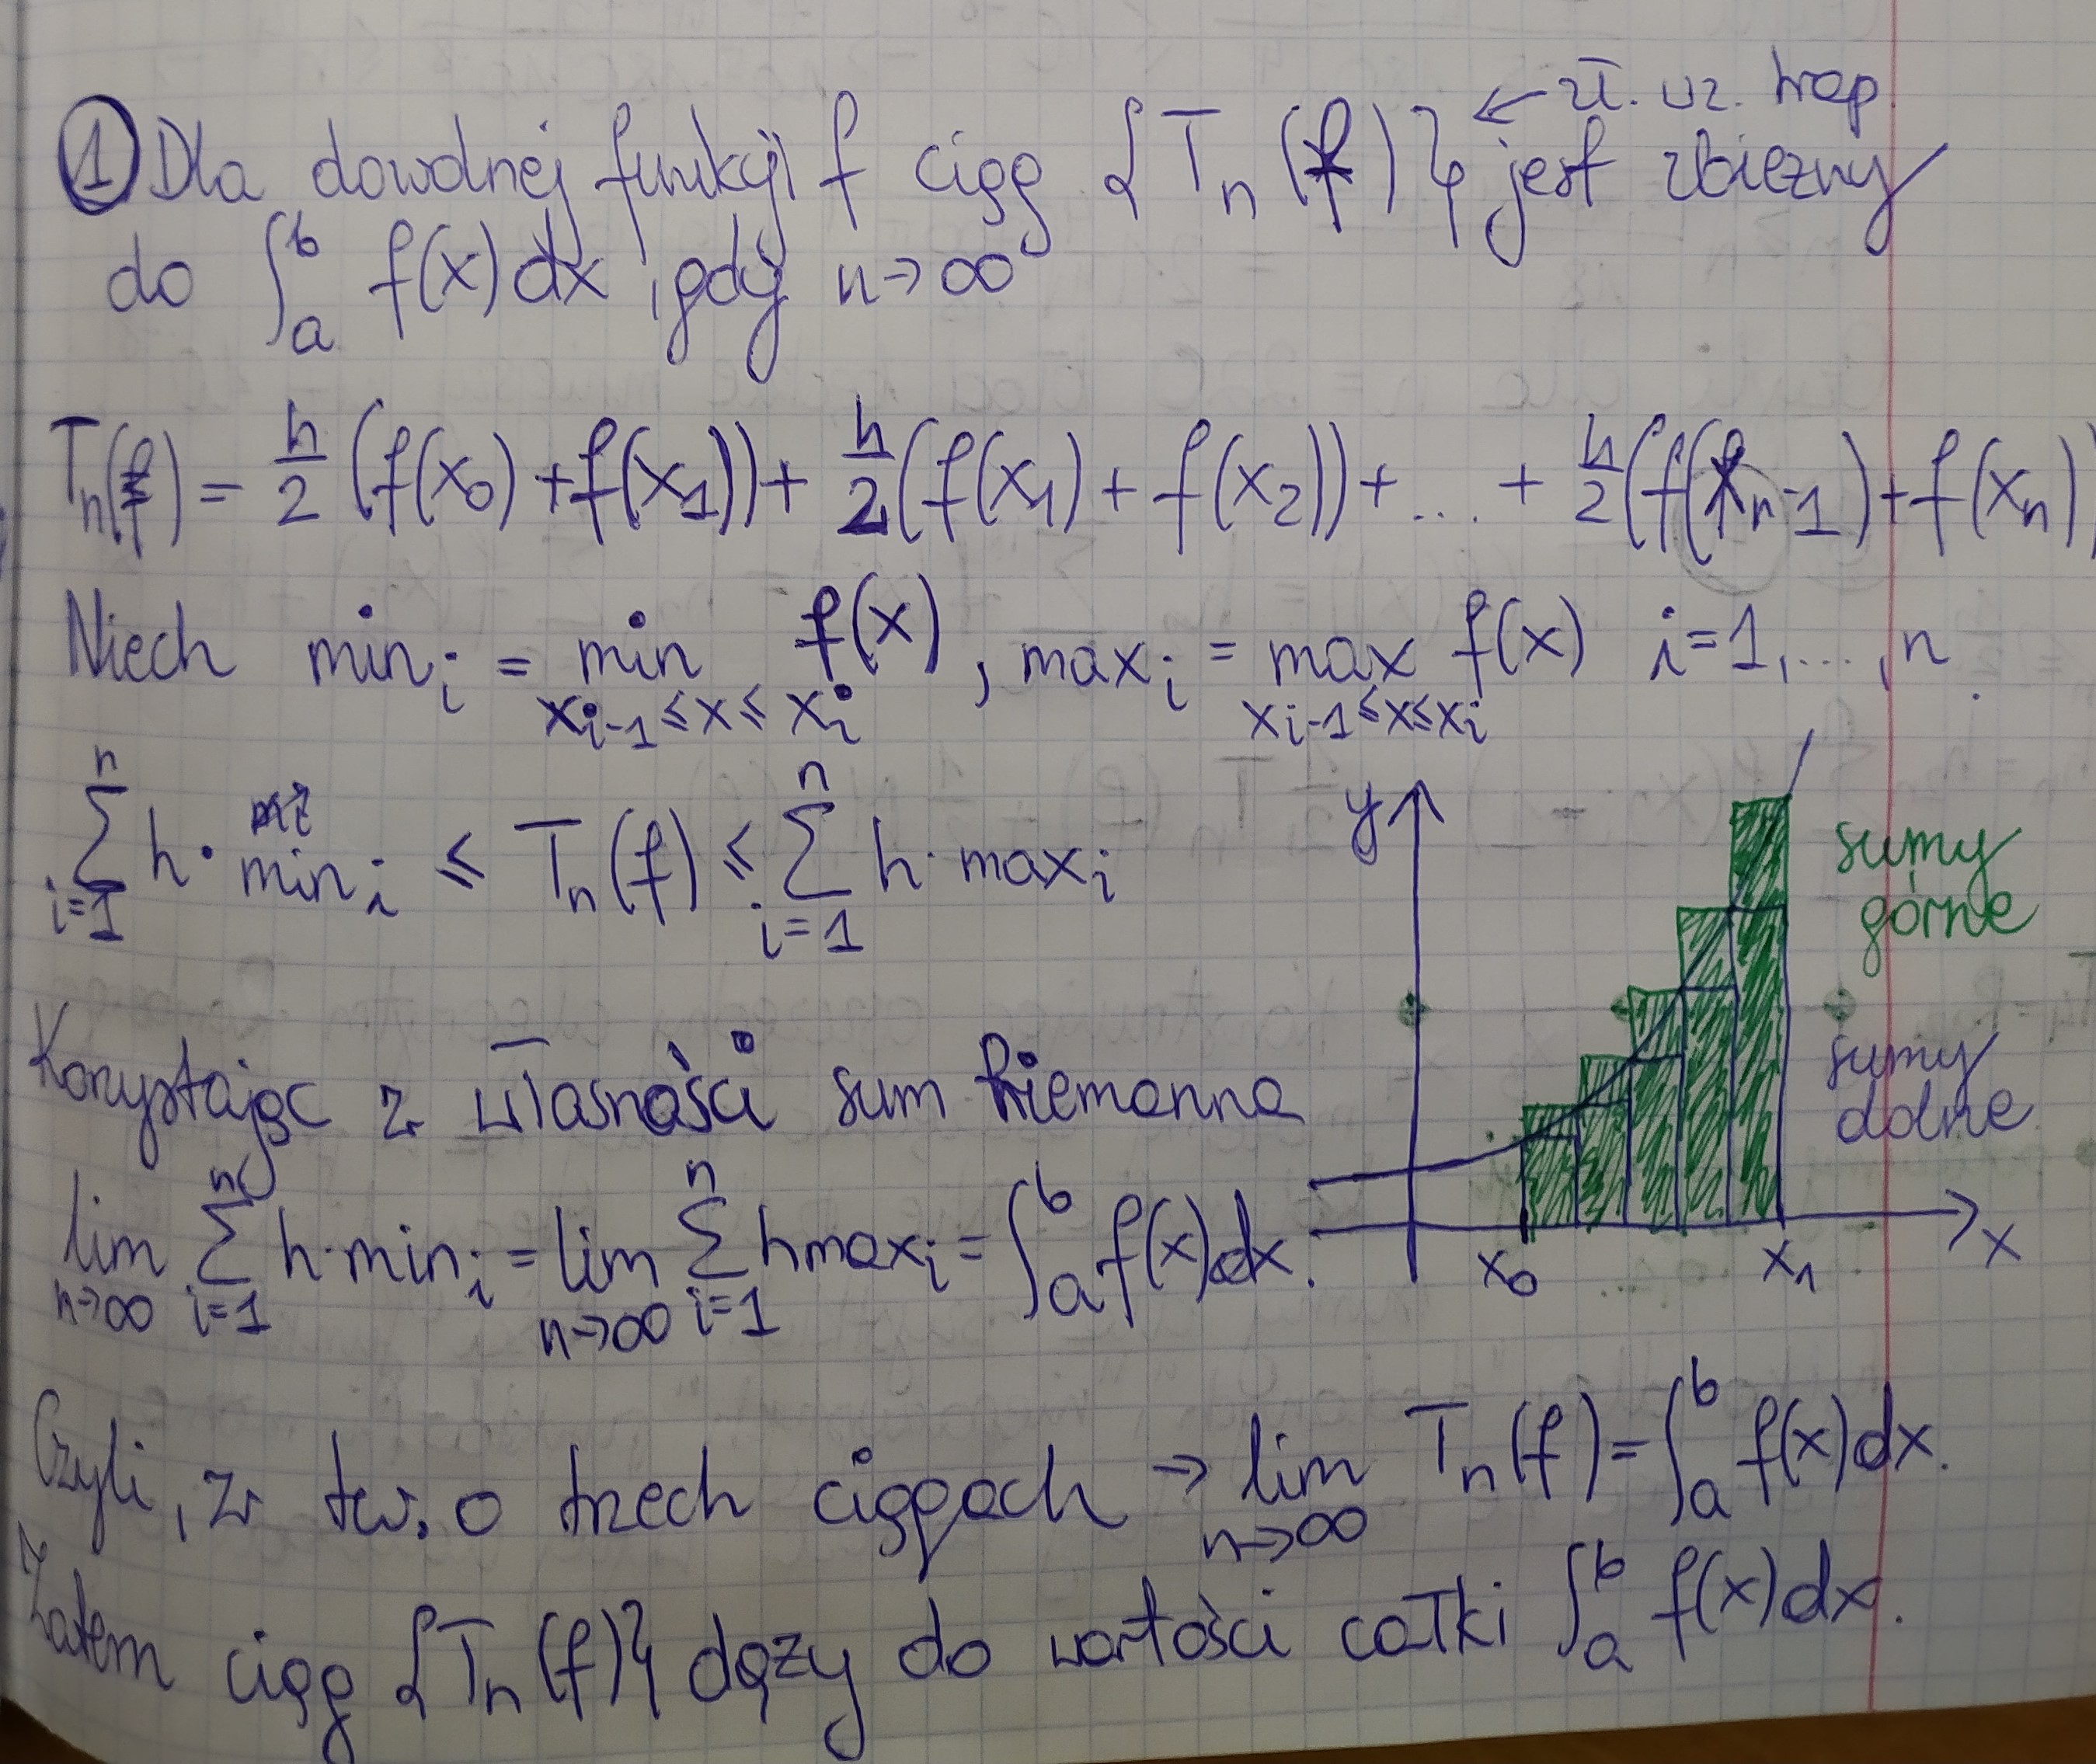 ① Dla dowolnej funkcji f ciąg {Tₙ(f)} ← zł. wz. trap. jest zbieżny
do ∫ₐᵇ f(x)dx, gdy n→∞
Tₙ(f) = h/2 (f(x₀)+f(x₁)) + h/2 (f(x₁)+f(x₂)) + ... + h/2 (f(xₙ₋₁)+f(xₙ))
Niech minᵢ = min_{xᵢ₋₁≤x≤xᵢ} f(x), maxᵢ = max_{xᵢ₋₁≤x≤xᵢ} f(x) i=1,...,n.
∑_{i=1}^{n} h·minᵢ ≤ Tₙ(f) ≤ ∑_{i=1}^{n} h·maxᵢ
y
sumy
górne
sumy
dolne
x₀ x₁ x
Korzystając z własności sum Riemanna
lim_{n→∞} ∑_{i=1}^{n} h·minᵢ = lim_{n→∞} ∑_{i=1}^{n} h maxᵢ = ∫ₐᵇ f(x)dx.
Czyli, z tw. o trzech ciągach → lim_{n→∞} Tₙ(f) = ∫ₐᵇ f(x)dx.
Zatem ciąg {Tₙ(f)} dąży do wartości całki ∫ₐᵇ f(x)dx.